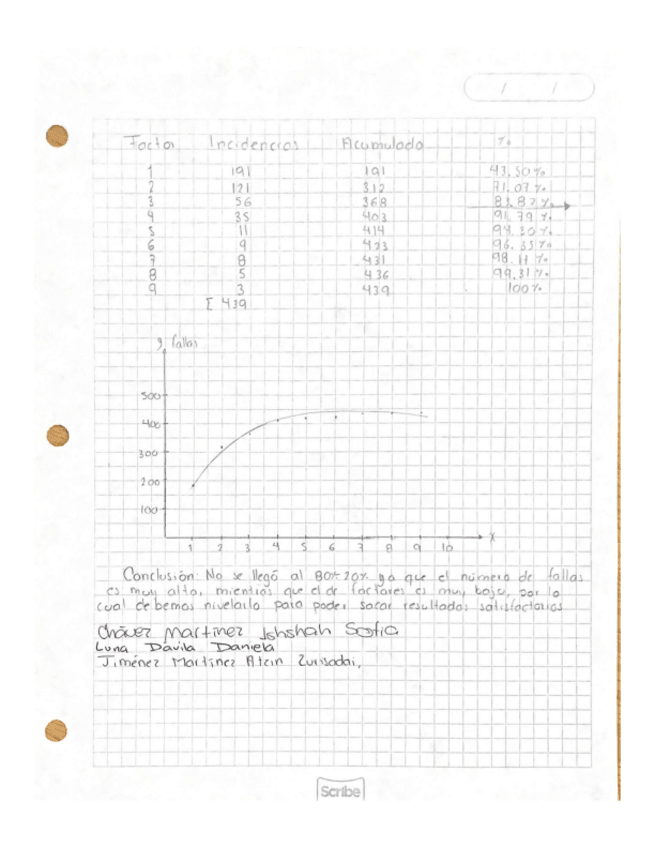 / /
Factor Incidencias Acumulado %
1 191 191 43.50%
2 121 312 71.07%
3 56 368 83.82%
4 35 403 91.79%
5 11 414 94.30%
6 9 423 96.35%
7 8 431 98.17%
8 5 436 99.31%
9 3 439 100%
Σ 439
y fallas
500
400
300
200
100
1 2 3 4 5 6 7 8 9 10 x
Conclusión: No se llegó al 80% 20% ya que el número de fallas
es muy alto, mientras que el de factores es muy bajo, por lo
cual debemos nivelarlo para poder sacar resultados satisfactorios
Chávez Martínez Ishshah Sofia
Luna Dávila Daniela
Jiménez Martínez Zurisadai,
Scribe